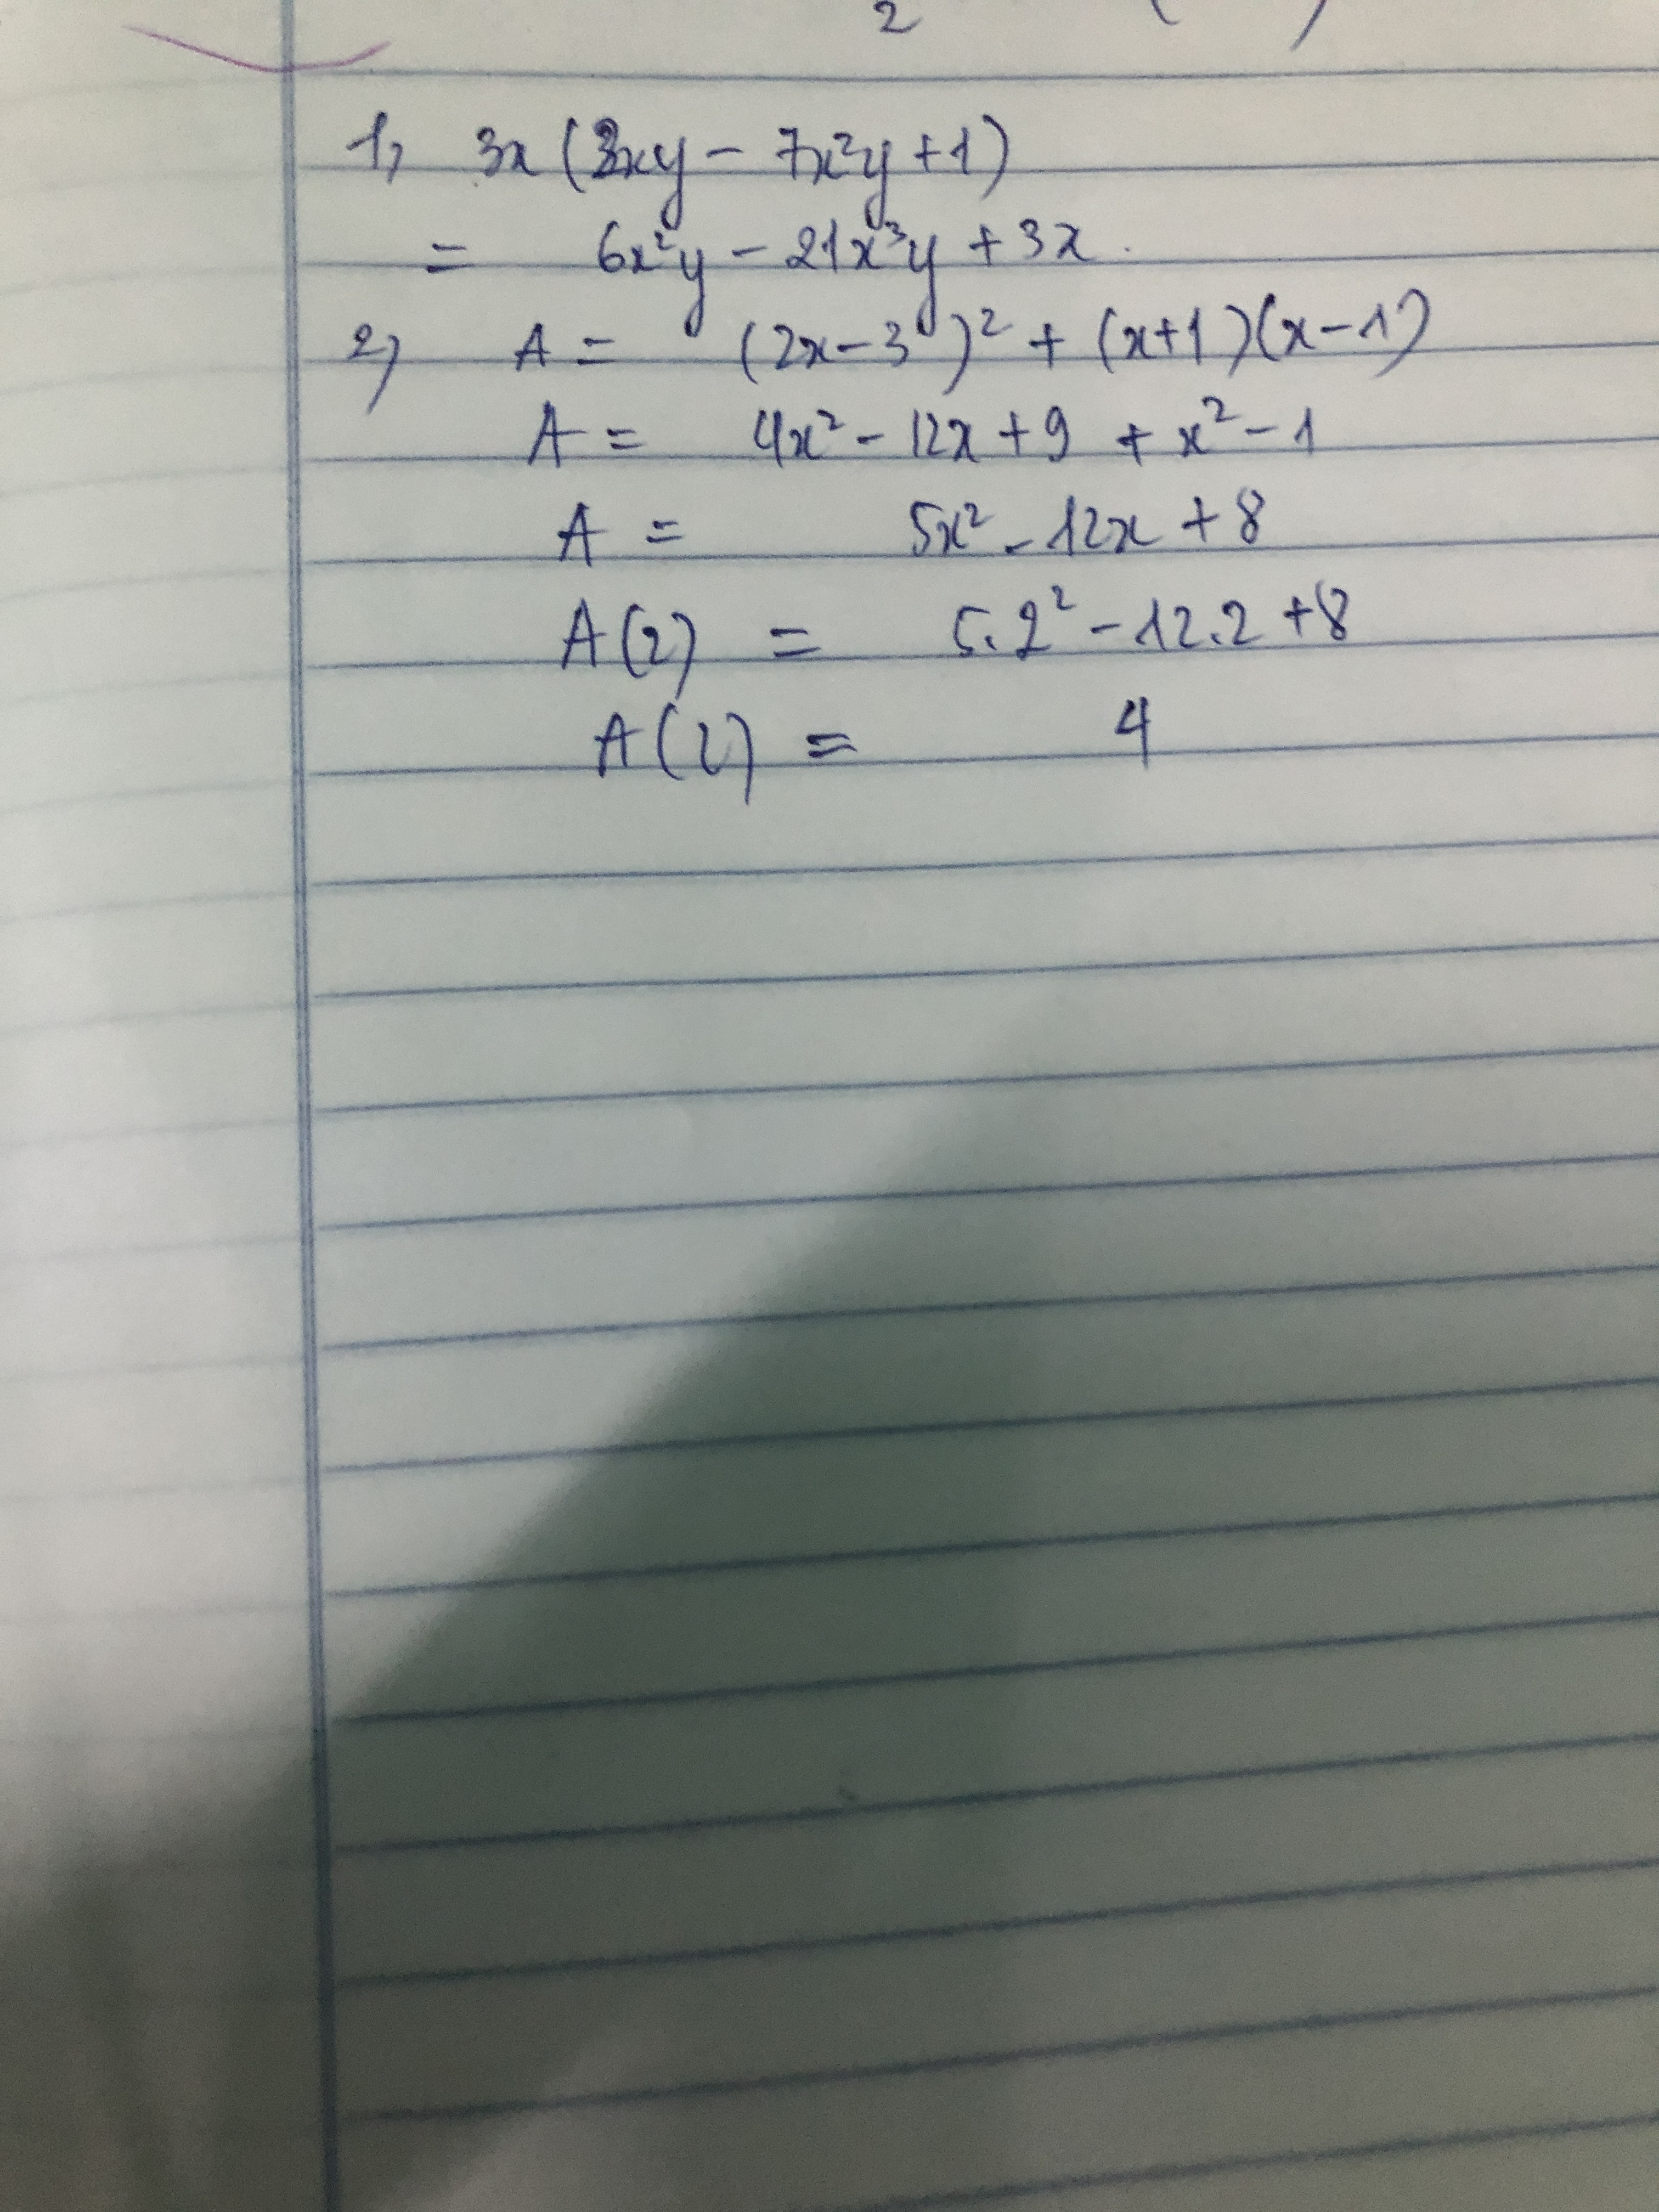 2 ( )
1, 3x (2xy - 7x²y + 1)
= 6x²y - 21x³y + 3x.
2) A = (2x - 3)² + (x+1)(x-1)
A = 4x² - 12x + 9 + x² - 1
A = 5x² - 12x + 8
A(2) = 5.2² - 12.2 + 8
A(2) = 4